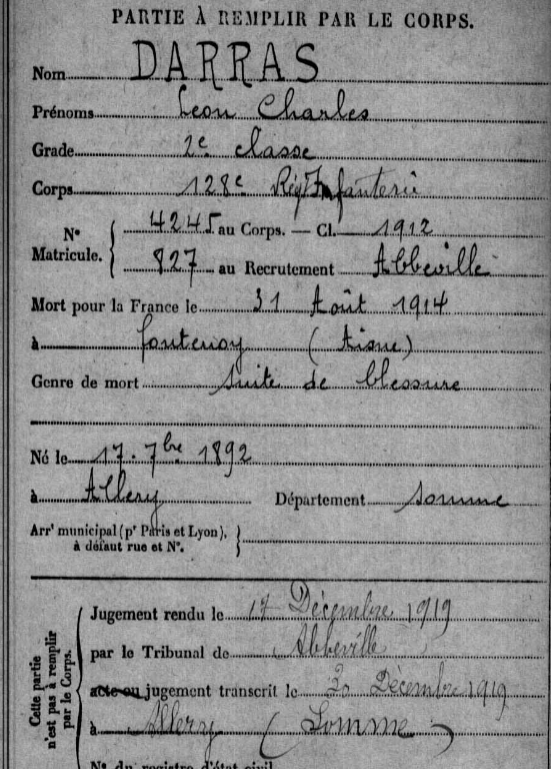 PARTIE À REMPLIR PAR LE CORPS.
Nom DARRAS
Prénoms Léon Charles
Grade 2e classe
Corps 128e Rég Infanterie
N° Matricule. 4245 au Corps. — Cl. 1912
827 au Recrutement Abbeville
Mort pour la France le 31 Août 1914
à Fontenoy (Aisne)
Genre de mort suite de blessure
Né le 17. 7bre 1892
à Allery Département Somme
Arrt municipal (pr Paris et Lyon),
à défaut rue et N°.
Cette partie n'est pas à remplir par le Corps.
Jugement rendu le 17 Décembre 1919
par le Tribunal de Abbeville
acte ou jugement transcrit le 30 Décembre 1919
à Allery (Somme)
N° du registre d'état civil